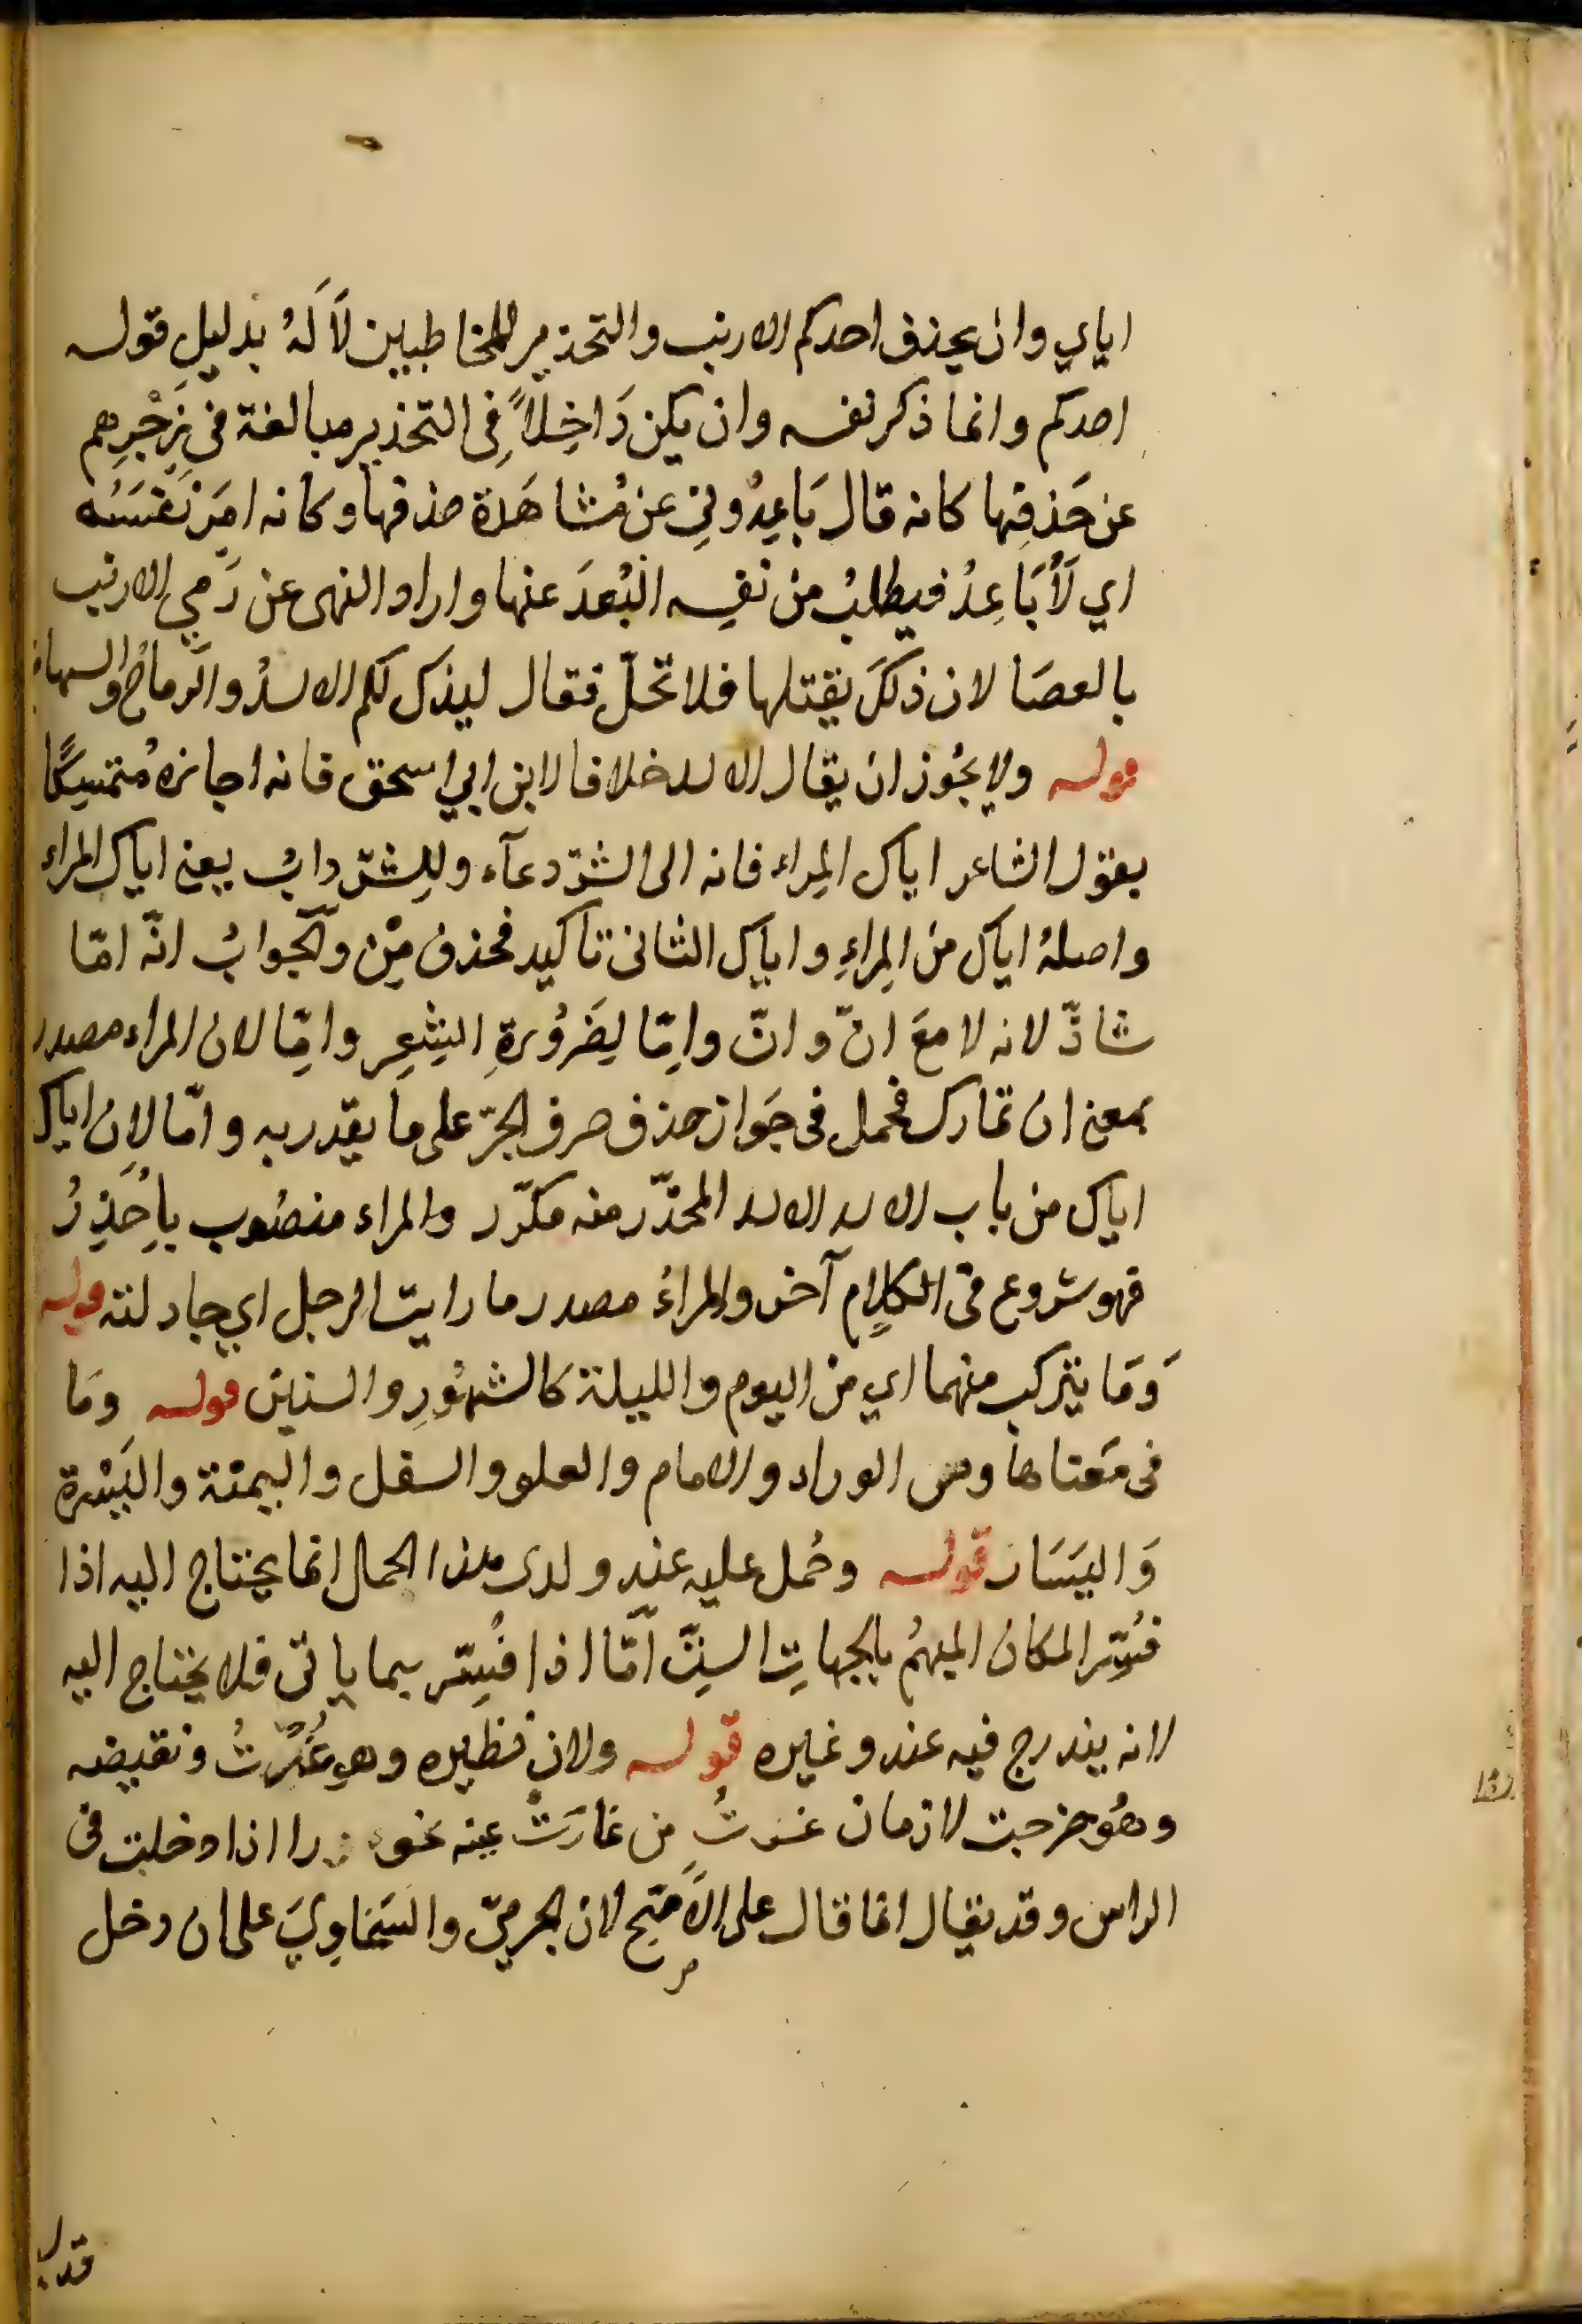 اياي وان يحذف احدكم الارنب والتحذير للمخاطبين لَا لَهُ بدليلِ قوله
احدكم وانما ذكر نفسه وان يكن دَاخِلًا فِى التحذير مبالغة فى زَجْرِهم
عن حَذفِها كانه قال بَاعِدُونِي عن مُشاهَدة حذفها وكانه امَرَ نَفسَهُ
اي لَأُبَاعِدُ فيطلبُ من نفسِه البُعدَ عنها واراد النهى عن رَميِ الارنب
بالعصَا لان ذلكَ يقتلها فلا تحلّ فقال ليذك لكم الاسدُ والرماحُ والسهام
قوله ولا يجُوز ان يقال الاسد خلافا لابن ابي اسحق فانه اجازه مُتمسِكًا
بقول الشاعر اياك المِراء فانه الى الشرّ دعآء وللِشرّ دابُ يعنى اياك المراء
واصلهُ اياك من المِراءِ واياك الثانى تاكيد فحذف مِنْ والجوابُ انّه امّا
شاذّ لانه لا معَ انّ وانّ وامِّا لِضَرُورةِ الشِعِر وامِّا لان المراء مصدر
بمعنى ان تمارك فحمل فى جَواز حذف حرف الجرّ على ما يقدر به وامّا لان اياك
اياك من باب الاسد الاسد المحذّر منه مكرّر والمراء منصُوب باِحْذَرْ
فهو شروع فى الكلامِ آخر والمراءُ مصدر مارايت الرجل اي جادلته قوله
وَمَا يتركب منهما اي من اليوم والليلة كالشهُورِ والسنين قوله ومَا
فى مَعناها وهى الوراء والامام والعلو والسفل واليمنَة واليَسْرة
وَاليَسَار قوله وحُمل عليه عند ولدى هذا الحمال انما يحتاج اليه اذا
فُسِّر المكان المبهمُ بالجهاتِ السِتّ امّا اذا فُسِّر بما ياتى فلا يحتاج اليه
لانه يندرج فيه عند وغيره قوله ولان نظيره وهو غُرْتُ ونقيضه
وهُو خرجت لازمان غرتُ من غارَتْ عينه اذا دخلت فى
الراس وقد يقال انما قال على الاَصَح لان الجرميّ والسَخاوِيَ على ان دخل